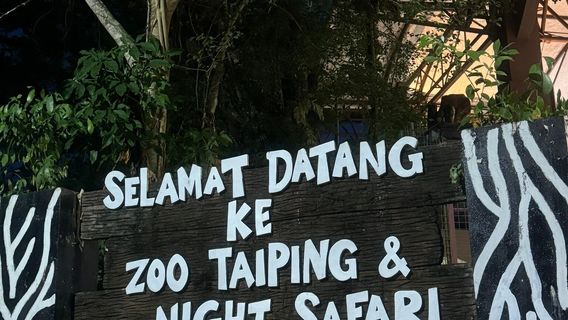 SELAMAT DATANG
KE
ZOO TAIPING &
NIGHT SAFARI